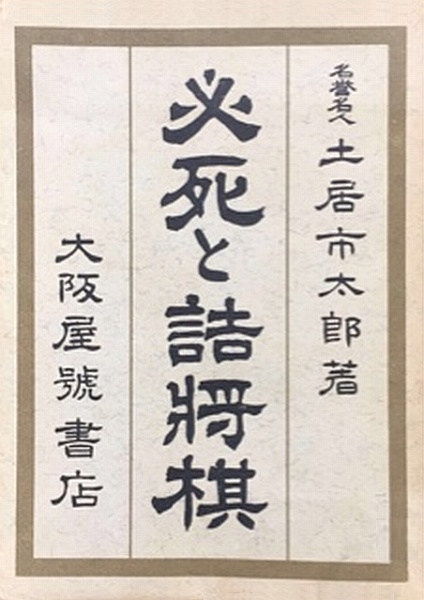 名誉名人 土居市太郎著
必死と詰將棋
大阪屋號書店